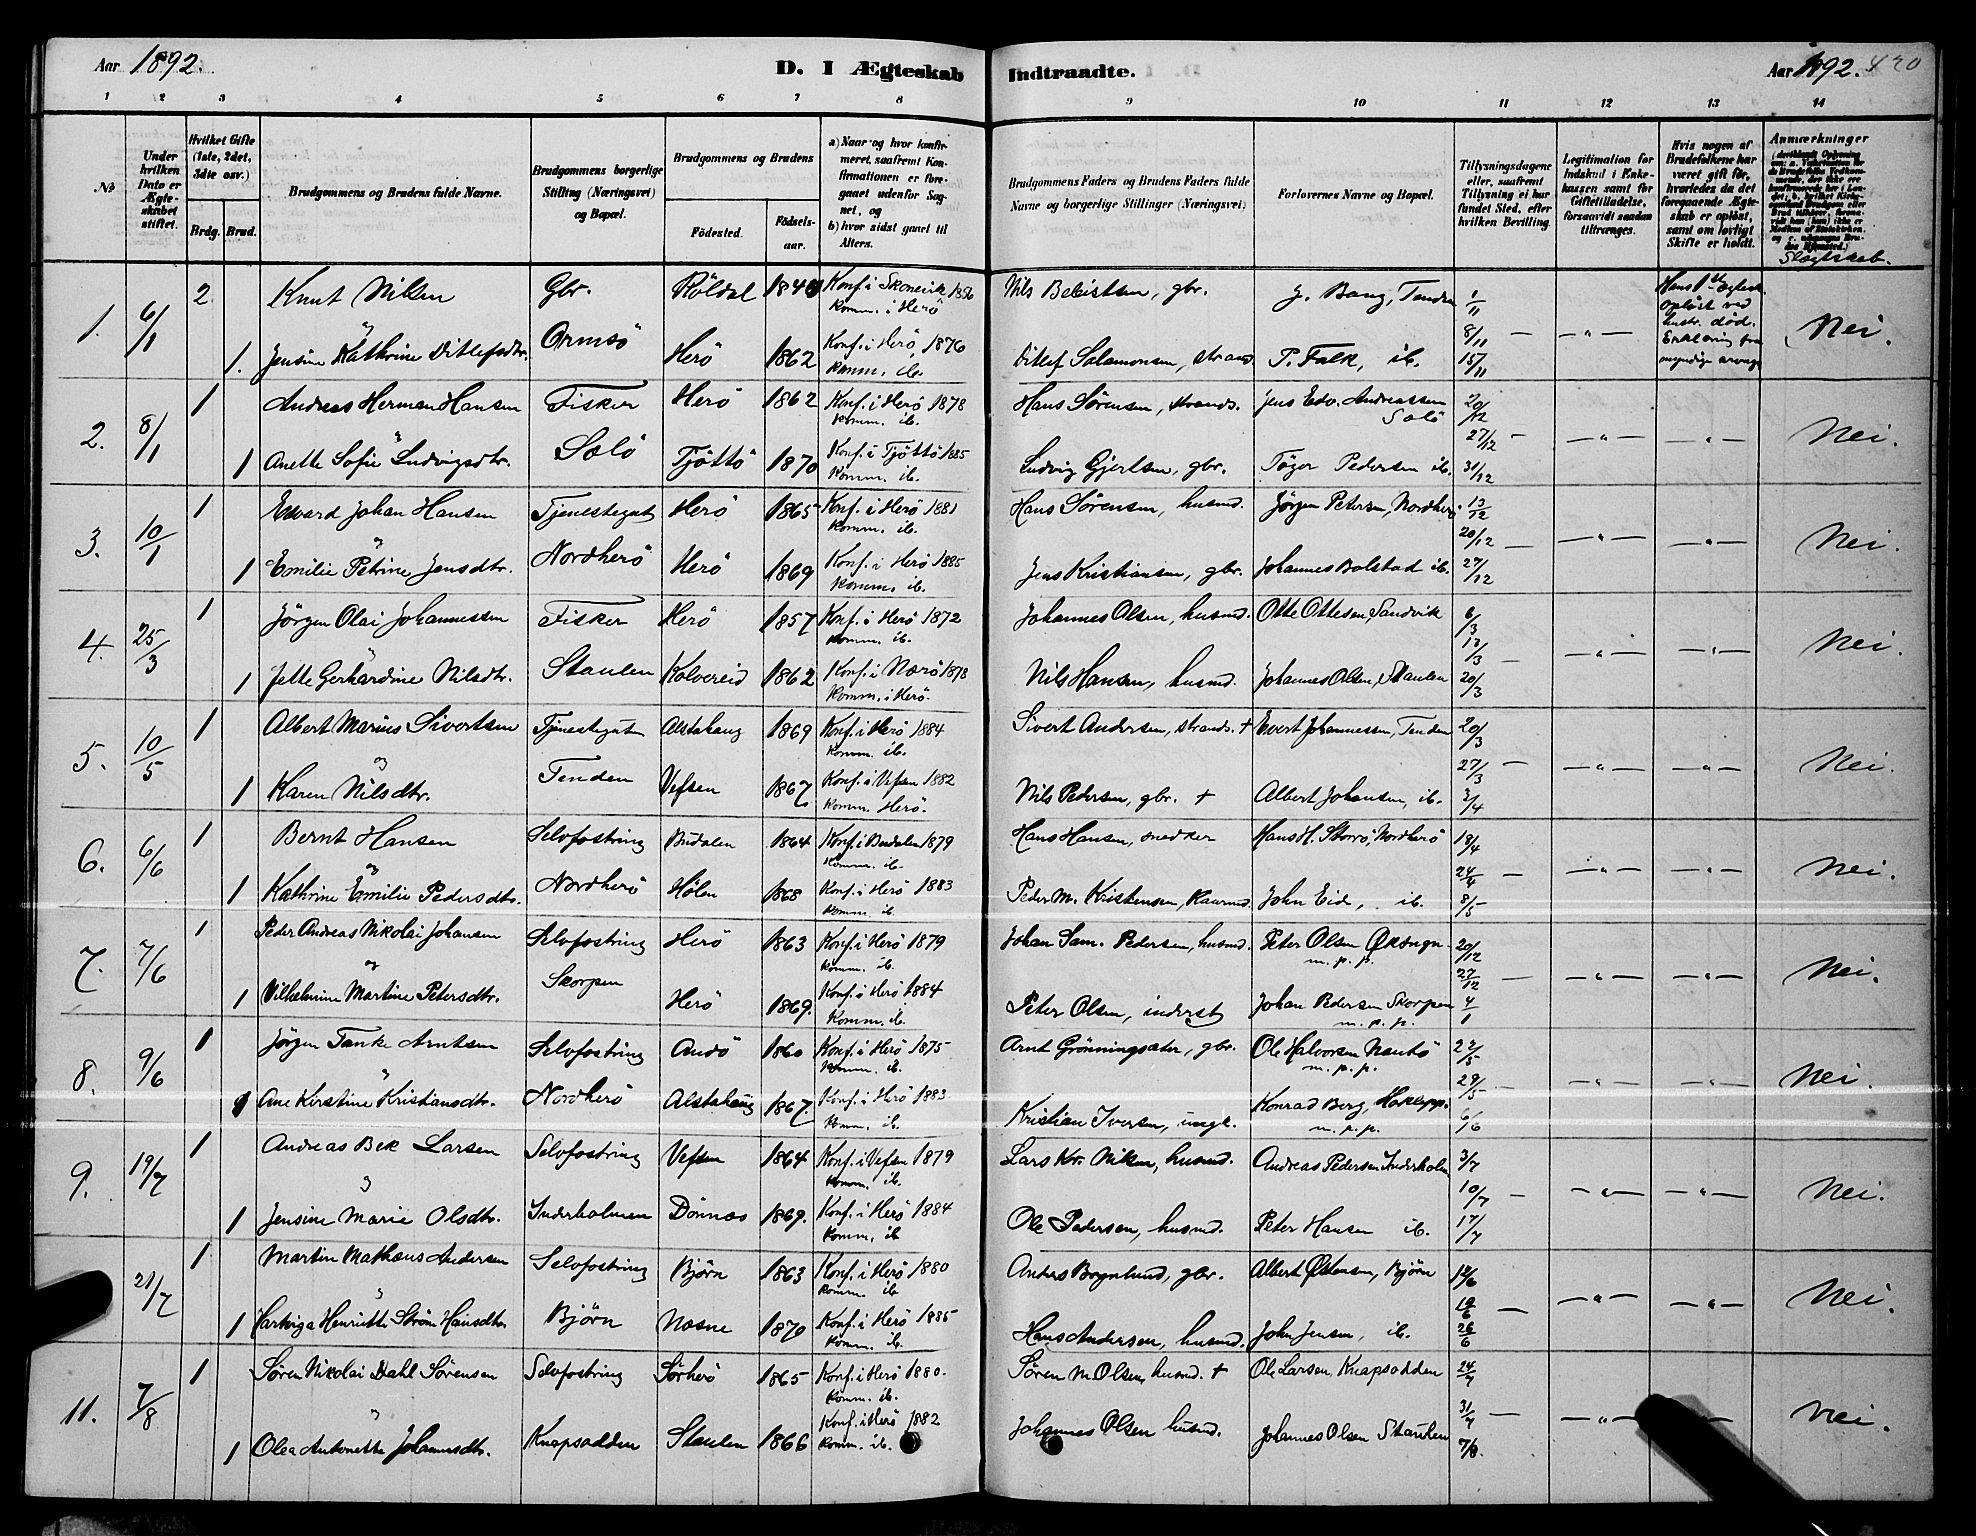 Aar 1892.
D. I Ægteskab Indtraadte.
Aar 1892. 420
1 2 3 4 5 6 7 8 9 10 11 12 13 14
№
Under hvilken Dato er Ægteskabet stiftet.
Hvilket Gifte (1ste, 2det, 3die osv.)
Brdg. Brud.
Brudgommens og Brudens fulde Navne.
Brudgommens borgerlige Stilling (Næringsvei) og Bopæl.
Brudgommens og Brudens
Fødested.
Fødselsaar.
a) Naar og hvor konfirmeret, saafremt Konfirmationen er foregaaet udenfor Sognet, og
b) hvor sidst gaaet til Alters.
Brudgommens Faders og Brudens Faders fulde Navne og borgerlige Stillinger (Næringsvei)
Forlovernes Navne og Bopæl.
Tillysningsdagene eller, saafremt Tillysning ei har fundet Sted, efter hvilken Bevilling.
Legitimation for Indskud i Enkekassen samt for Giftetilladelse, forsaavidt saadan tiltrænges.
Hvis nogen af Brudefolkene har været gift før, hvorledes da det foregaaende Ægteskab er opløst, samt om lovligt Skifte er holdt.
Anmærkninger
Slægtskab.
1. 6/1 2 Knut Nilsen Gbr. Röldal 1840 Konf. i Skonevik 1856 Komm. i Herö Nils Beleitsen, gbr. J. Bang, Tenden 1/11
Hans 1ste ægtesk. opløst ved hustr. død. Erklæring fra myndige arvinge
1. Jensine Kathrine Ditlefsdtr. Ormsö Herö 1862 Konf. i Herö, 1876 Komm. ib. Ditlef Salamonsen, strands. P. Falk, ib. 8/11 15/11 — " — Nei.
2. 8/1 1 Andreas Herman Hansen Fisker Herö 1862 Konf. i Herö 1878 Komm. ib. Hans Sörensen, strands. Jens Edv. Andreassen Solö 20/12
og 1 Anette Sofie Ludvigsdtr. Solö Tjöttö 1870 Konf. i Tjöttö 1885 Komm. ib. Ludvig Gjertsen, gbr. Töger Pedersen ib. 27/12 31/12 — " — — " — Nei.
3. 10/1 1 Edvard Johan Hansen Tjenestegut Herö 1865 Konf. i Herö 1881 Komm. ib. Hans Sörensen, husmd. Jörgen Petersen, Nordherö 13/12
og 1 Emilie Petrine Jensdtr. Nordherö Herö 1869 Konf. i Herö 1885 Komm. ib. Jens Kristiansen, gbr. Johannes Bolstad ib. 20/12 27/12 — " — — " — Nei.
4. 25/3 1 Jörgen Olai Johannessen Fisker Herö 1857 Konf. i Herö 1872 Komm. ib. Johannes Olsen, husmd. Otte Ottesen, Sandvik 6/3
1 Jette Gerhardine Nilsdtr. Staulen Kolvereid 1862 Konf. i Nærö 1878 Komm. i Herö. Nils Hansen, husmd. Johannes Olsen, Staulen 13/3 20/3 — " — — " — Nei.
5. 10/5 1 Albert Marius Sivertsen Tjenestegut Alstahaug 1869 Konf. i Herö 1884 Komm. ib. Sivert Andersen, strands. + Evert Johannessen, Tenden 20/3
og 1 Karen Nilsdtr. Tenden Vefsen 1867. Konf. i Vefsen 1882 Komm. Herö. Nils Pedersen, gbr. + Albert Johansen, ib. 27/3 3/4 — " — — " — Nei.
6. 6/6 1 Bernt Hansen Selvfostring Budalen 1864 Konf. i Budalen 1879 Komm. ib. Hans Hansen, snedker Hans H. Storrö, Nordherö 18/4
og 1 Kathrine Emilie Pedersdtr. Nordherö Hølen 1868 Konf. i Herö 1883 Komm. ib. Peder M. Kristensen, Kaarmd. John Eid, ib. 24/4 8/5 — " — — " — Nei.
7. 7/6 1 Peder Andreas Nikolai Johansen Selvfostring Herö 1863 Konf. i Herö 1879 Komm. ib. Johan Sam. Pedersen, husmd. Peter Olsen Øksngn. m. p. p. 20/12
og 1 Vilhelmine Martine Petersdtr. Skorpen Herö 1869. Konf. i Herö 1884 Komm. ib. Peter Olsen, inderst Johan Pedersen Skorpen m. p. p. 27/12 4/1 — " — — " — Nei.
8. 9/6 1 Jörgen Tanke Arntsen Selvfostring Andö 1860 Konf. i Herö 1875 Komm. ib. Arnt Grönningsæter, gbr. Ole Halvorsen Nautö m. p. p. 22/5
1 Ane Kerstine Kristiansdtr. Nordherö Alstahaug 1867. Konf. i Herö 1883 Komm. ib. Kristian Iversen, ungk. Konrad Berg, m. p. p. 29/5 6/6 — " — — " — Nei.
9. 19/7 1 Andreas Bek Larsen Selvfostring Vefsen 1864 Konf. i Vefsen 1879 Komm. ib. Lars Kr. Nilsen, husmd. Andreas Pedersen Inderholm. 3/7
og 1 Jensine Marie Olsdtr. Inderholmen Dönnæs 1869. Konf. i Herö 1884 Komm. ib Ole Pedersen, husmd. Peter Hansen ib. 10/7 17/7 — " — — " — Nei.
21/7 1 Martin Mathæus Andersen Selvfostring Bjørn 1863 Konf. i Herö 1880 Komm. ib Anders Bognlund, gbr. Albert Østensen, Bjørn 12/6
1 Hartviga Henriette Ström Hansdtr. Bjørn Næsne 1870 Konf. i Herö 1885 Komm. ib. Hans Andersen, husmd. John Jensen, ib. 19/6 26/6 — " — — " — Nei.
11. 7/8 1 Sören Nikolai Dahl Sörensen Selvfostring Sörherö 1865 Konf. i Herö 1880. Komm. ib. Sören M. Olsen, husmd. + Ole Larsen, Knapsodden 24/7
1 Olea Antonette Johannesdtr. Knapsodden Staulen 1866 Konf. i Herö 1882 Komm. ib. Johannes Olsen husmd. Johannes Olsen Staulen 31/7 7/8. — " — — " — Nei.